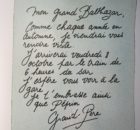 Mon grand Balthazar,
Comme chaque année en
automne, je viendrai vous
rendre visite.
J'arriverai vendredi 8
octobre par le train de
6 heures du soir.
J'espère vous voir à la
gare.
Je t'embrasse ainsi
que Pépin
Grand Père